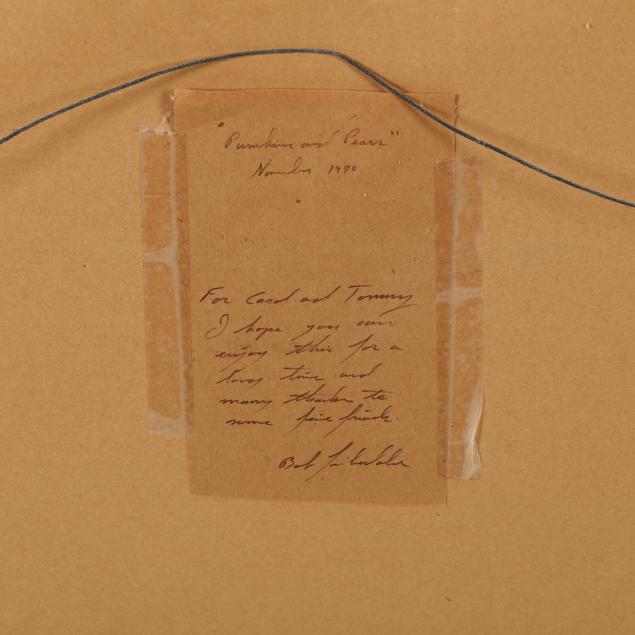 "Pumpkins and Pears"
November 1990
For Carol and Tommy
I hope you can
enjoy this for a
long time and
many thanks to
some fine friends.
Bob